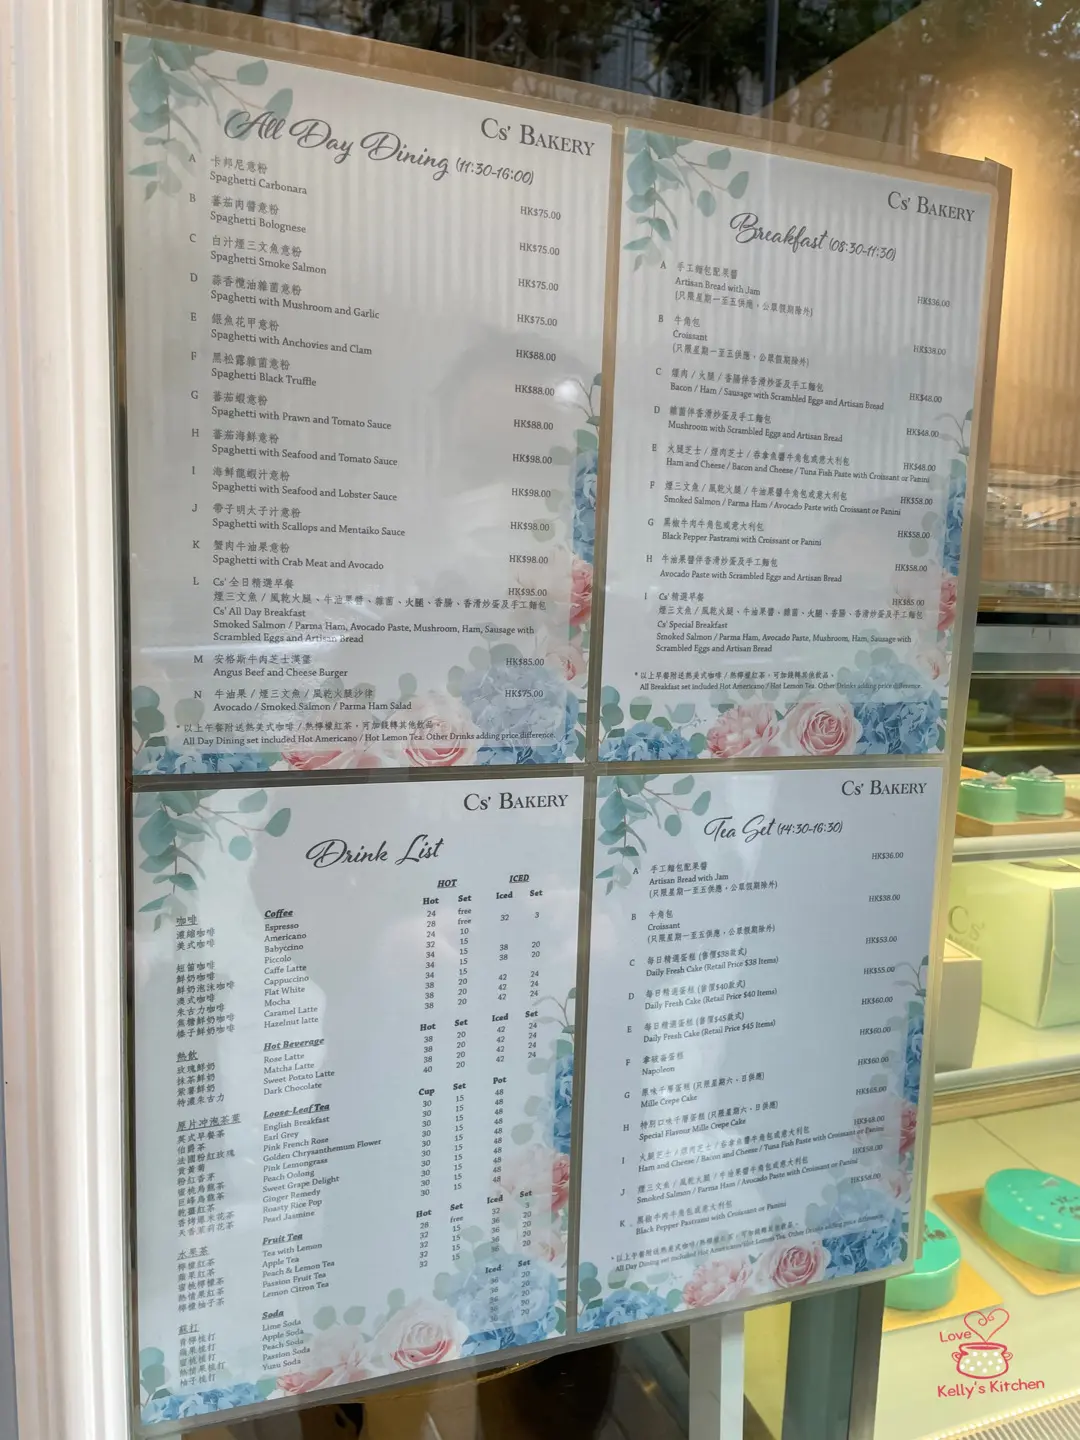 Cs' BAKERY
All Day Dining (11:30-16:00)
A 卡邦尼意粉
Spaghetti Carbonara
HK$75.00
B 蕃茄肉醬意粉
Spaghetti Bolognese
HK$75.00
C 白汁煙三文魚意粉
Spaghetti Smoke Salmon
HK$75.00
D 蒜香欖油雜菌意粉
Spaghetti with Mushroom and Garlic
HK$75.00
E 銀魚花甲意粉
Spaghetti with Anchovies and Clam
HK$88.00
F 黑松露雜菌意粉
Spaghetti Black Truffle
HK$88.00
G 蕃茄蝦意粉
Spaghetti with Prawn and Tomato Sauce
HK$88.00
H 蕃茄海鮮意粉
Spaghetti with Seafood and Tomato Sauce
HK$98.00
I 海鮮龍蝦汁意粉
Spaghetti with Seafood and Lobster Sauce
HK$98.00
J 帶子明太子汁意粉
Spaghetti with Scallops and Mentaiko Sauce
HK$98.00
K 蟹肉牛油果意粉
Spaghetti with Crab Meat and Avocado
HK$98.00
L Cs' 全日精選早餐
HK$95.00
煙三文魚 / 風乾火腿、牛油果醬、雜菌、火腿、香腸、香滑炒蛋及手工麵包
Cs' All Day Breakfast
Smoked Salmon / Parma Ham, Avocado Paste, Mushroom, Ham, Sausage with
Scrambled Eggs and Artisan Bread
M 安格斯牛肉芝士漢堡
Angus Beef and Cheese Burger
HK$85.00
N 牛油果 / 煙三文魚 / 風乾火腿沙律
Avocado / Smoked Salmon / Parma Ham Salad
HK$75.00
* 以上午餐附送熱美式咖啡 / 熱檸檬紅茶，可加錢轉其他飲品。
All Day Dining set included Hot Americano / Hot Lemon Tea. Other Drinks adding price difference.
Cs' BAKERY
Breakfast (08:30-11:30)
A 手工麵包配果醬
Artisan Bread with Jam
(只限星期一至五供應，公眾假期除外)
HK$36.00
B 牛角包
Croissant
(只限星期一至五供應，公眾假期除外)
HK$38.00
C 煙肉 / 火腿 / 香腸伴香滑炒蛋及手工麵包
Bacon / Ham / Sausage with Scrambled Eggs and Artisan Bread
HK$48.00
D 雜菌伴香滑炒蛋及手工麵包
Mushroom with Scrambled Eggs and Artisan Bread
HK$48.00
E 火腿芝士 / 煙肉芝士 / 吞拿魚醬牛角包或意大利包
Ham and Cheese / Bacon and Cheese / Tuna Fish Paste with Croissant or Panini
HK$48.00
F 煙三文魚 / 風乾火腿 / 牛油果醬牛角包或意大利包
Smoked Salmon / Parma Ham / Avocado Paste with Croissant or Panini
HK$58.00
G 黑椒牛肉牛角包或意大利包
Black Pepper Pastrami with Croissant or Panini
HK$58.00
H 牛油果醬伴香滑炒蛋及手工麵包
Avocado Paste with Scrambled Eggs and Artisan Bread
HK$58.00
I Cs' 精選早餐
HK$85.00
煙三文魚 / 風乾火腿、牛油果醬、雜菌、火腿、香腸、香滑炒蛋及手工麵包
Cs' Special Breakfast
Smoked Salmon / Parma Ham, Avocado Paste, Mushroom, Ham, Sausage with
Scrambled Eggs and Artisan Bread
* 以上早餐附送熱美式咖啡 / 熱檸檬紅茶，可加錢轉其他飲品。
All Breakfast set included Hot Americano / Hot Lemon Tea. Other Drinks adding price difference.
Cs' BAKERY
Drink List
HOT ICED
咖啡 Coffee Hot Set Iced Set
濃縮咖啡 Espresso 24 free
美式咖啡 Americano 28 free 32 3
Babyccino 24 10
短笛咖啡 Piccolo 32 15
鮮奶咖啡 Caffe Latte 34 15 38 20
鮮奶泡沫咖啡 Cappuccino 34 15 38 20
澳式咖啡 Flat White 34 15
朱古力咖啡 Mocha 38 20 42 24
焦糖鮮奶咖啡 Caramel Latte 38 20 42 24
榛子鮮奶咖啡 Hazelnut latte 38 20 42 24
熱飲 Hot Beverage Hot Set Iced Set
玫瑰鮮奶 Rose Latte 38 20 42 24
抹茶鮮奶 Matcha Latte 38 20 42 24
紫薯鮮奶 Sweet Potato Latte 38 20 42 24
特濃朱古力 Dark Chocolate 40 20 42 24
原片沖泡茶葉 Loose-Leaf Tea Cup Set Pot
英式早餐茶 English Breakfast 30 15 48
伯爵茶 Earl Grey 30 15 48
法國粉紅玫瑰 Pink French Rose 30 15 48
貢黃菊 Golden Chrysanthemum Flower 30 15 48
粉紅香茅 Pink Lemongrass 30 15 48
蜜桃烏龍茶 Peach Oolong 30 15 48
巨峰烏龍茶 Sweet Grape Delight 30 15 48
乾薑紅茶 Ginger Remedy 30 15 48
香烤爆米花茶 Roasty Rice Pop 30 15 48
天香茉莉花茶 Pearl Jasmine
水果茶 Fruit Tea Hot Set Iced Set
檸檬紅茶 Tea with Lemon 28 free 32 3
蘋果紅茶 Apple Tea 32 15 36 20
蜜桃檸檬茶 Peach & Lemon Tea 32 15 36 20
熱情果紅茶 Passion Fruit Tea 32 15 36 20
檸檬柚子茶 Lemon Citron Tea 32 15 36 20
蘇打 Soda Iced Set
青檸梳打 Lime Soda 36 20
蘋果梳打 Apple Soda 36 20
蜜桃梳打 Peach Soda 36 20
熱情果梳打 Passion Soda 36 20
柚子梳打 Yuzu Soda
Cs' BAKERY
Tea Set (14:30-16:30)
HK$36.00
A 手工麵包配果醬
Artisan Bread with Jam
(只限星期一至五供應，公眾假期除外)
HK$38.00
B 牛角包
Croissant
(只限星期一至五供應，公眾假期除外)
HK$53.00
C 每日精選蛋糕 (售價$38款式)
Daily Fresh Cake (Retail Price $38 Items)
HK$55.00
D 每日精選蛋糕 (售價$40款式)
Daily Fresh Cake (Retail Price $40 Items)
HK$60.00
E 每日精選蛋糕 (售價$45款式)
Daily Fresh Cake (Retail Price $45 Items)
HK$60.00
F 拿破崙蛋糕
Napoleon
HK$60.00
G 原味千層蛋糕 (只限星期六、日供應)
Mille Crepe Cake
HK$65.00
H 特別口味千層蛋糕 (只限星期六、日供應)
Special Flavour Mille Crepe Cake
HK$48.00
I 火腿芝士 / 煙肉芝士 / 吞拿魚醬牛角包或意大利包
Ham and Cheese / Bacon and Cheese / Tuna Fish Paste with Croissant or Panini
HK$58.00
J 煙三文魚 / 風乾火腿 / 牛油果醬牛角包或意大利包
Smoked Salmon / Parma Ham / Avocado Paste with Croissant or Panini
HK$58.00
K 黑椒牛肉牛角包或意大利包
Black Pepper Pastrami with Croissant or Panini
* 以上午餐附送熱美式咖啡/熱檸檬紅茶，可加錢轉其他飲品。
All Day Dining set included Hot Americano/ Hot Lemon Tea. Other Drinks adding price difference.
Cs'
Love
Kelly's Kitchen